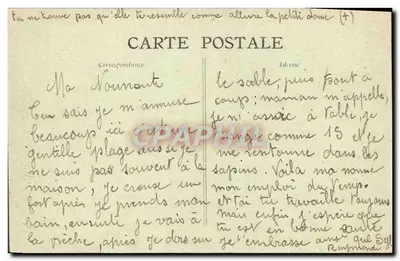 tu ne trouve pas qu'elle te ressemble comme allure la petite dame (+)
CARTE POSTALE
Correspondance
Adresse
Ma Nounout
Tu sais je m'amuse
beaucoup ici cette
gentille plage aussi je
ne suis pas souvent à la
maison; je creuse un
fort après je prends mon
bain, ensuite je vais à
la pêche, après je dors sur
le sable, puis tout à
coup; maman m'appelle,
je m' à table, je
mange comme 15 et je
me rentonne dans les
sapins. Voila ma nounou
mon emploi du temps.
et tai tu travaille toujours
mais enfin, j'espère que
tu est en bonne santé
je t'embrasse
Raymonde